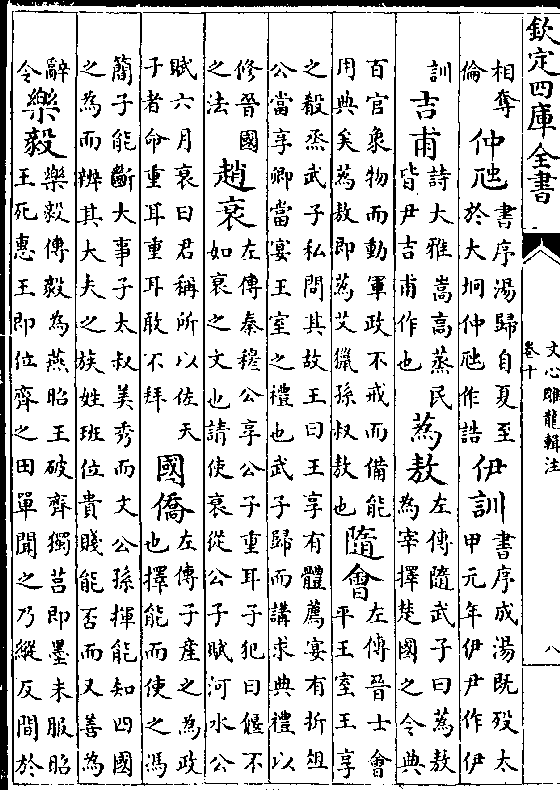 欽定四庫全書
文心雕龍輯注
卷十
八
相奪
倫
仲虺
書序湯歸自夏至
於大坰仲虺作誥
伊訓
書序成湯既歿太
甲元年伊尹作伊
訓
吉甫
詩大雅嵩高蒸民
皆尹吉甫作也
蒍敖
左傳隨武子曰蒍敖
為宰擇楚國之令典
百官象物而動軍政不戒而備能
用典矣蒍敖即蒍艾獵孫叔敖也
隨會
左傳晉士會
平王室王享
之殽烝武子私問其故王曰王享有體薦宴有折俎
公當享卿當宴王室之禮也武子歸而講求典禮以
修晉國
之法
趙衰
左傳秦穆公享公子重耳子犯曰偃不
如衰之文也請使衰從公子賦河水公
賦六月衰曰君稱所以佐天
子者命重耳重耳敢不拜
國僑
左傳子產之為政
也擇能而使之馮
簡子能斷大事子太叔美秀而文公孫揮能知四國
之為而辨其大夫之族姓班位貴賤能否而又善為
辭
令
樂毅
樂毅傳毅為燕昭王破齊獨莒即墨未服昭
王死惠王即位齊之田單聞之乃縱反間於